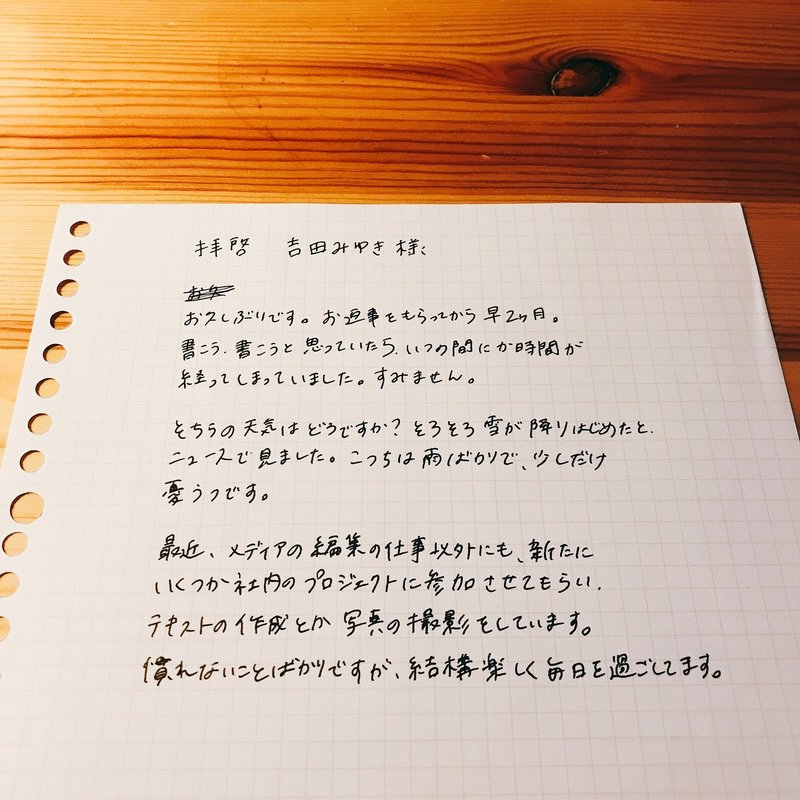 拝啓 吉田みゆき様、
お久しぶりです。お返事をもらってから早2ヶ月。
書こう、書こうと思っていたら、いつの間にか時間が
経ってしまっていました。すみません。
そちらの天気はどうですか？そろそろ雪が降りはじめたと、
ニュースで見ました。こっちは雨ばかりで、少しだけ
憂うつです。
最近、メディアの編集の仕事以外にも、新たに
いくつか社内のプロジェクトに参加させてもらい、
テキストの作成とか写真の撮影をしています。
慣れないことばかりですが、結構楽しく毎日を過ごしてます。